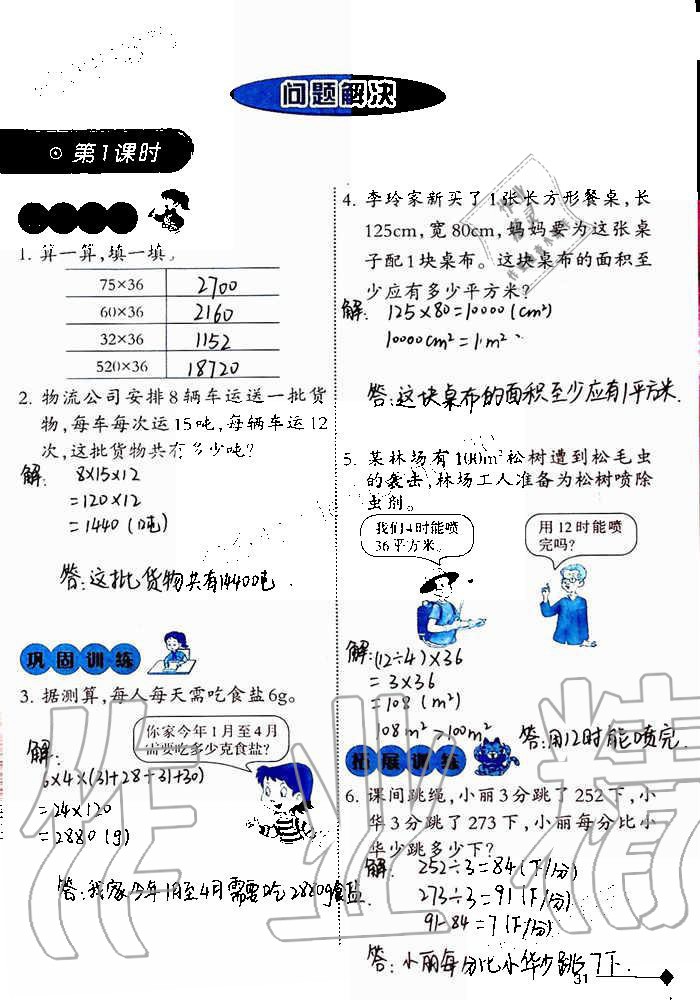 问题解决
第1课时
1. 算一算,填一填。
75×36 2700
60×36 2160
32×36 1152
520×36 18720
2. 物流公司安排8辆车运送一批货
物,每车每次运15吨,每辆车运12
次,这批货物共有多少吨?
解: 8×15×12
=120×12
=1440(吨)
答:这批货物共有14400吨.
巩固训练
3. 据测算,每人每天需吃食盐6g。
你家今年1月至4月
需要吃多少克食盐?
解:
6×4×(31+28+31+30)
=24×120
=2880(g)
答:我家今年1月至4月需要吃2880g食盐
4. 李玲家新买了1张长方形餐桌,长
125cm,宽80cm,妈妈要为这张桌
子配1块桌布。这块桌布的面积至
少应有多少平方米?
解: 125×80=10000(cm²)
10000cm²=1m²
答:这块桌布的面积至少应有1平方米.
5. 某林场有100m²松树遭到松毛虫
的袭击,林场工人准备为松树喷除
虫剂。
我们4时能喷
36平方米。
用12时能喷
完吗?
解: (12÷4)×36
=3×36
=108(m²)
108m² 100m²
答:用12时能喷完.
拓展训练
6. 课间跳绳,小丽3分跳了252下,小
华3分跳了273下,小丽每分比小
华少跳多少下?
解: 252÷3=84(下/分)
273÷3=91(下/分)
91-84=7(下/分)
答:小丽每分比小华少跳7下.
31
作业精